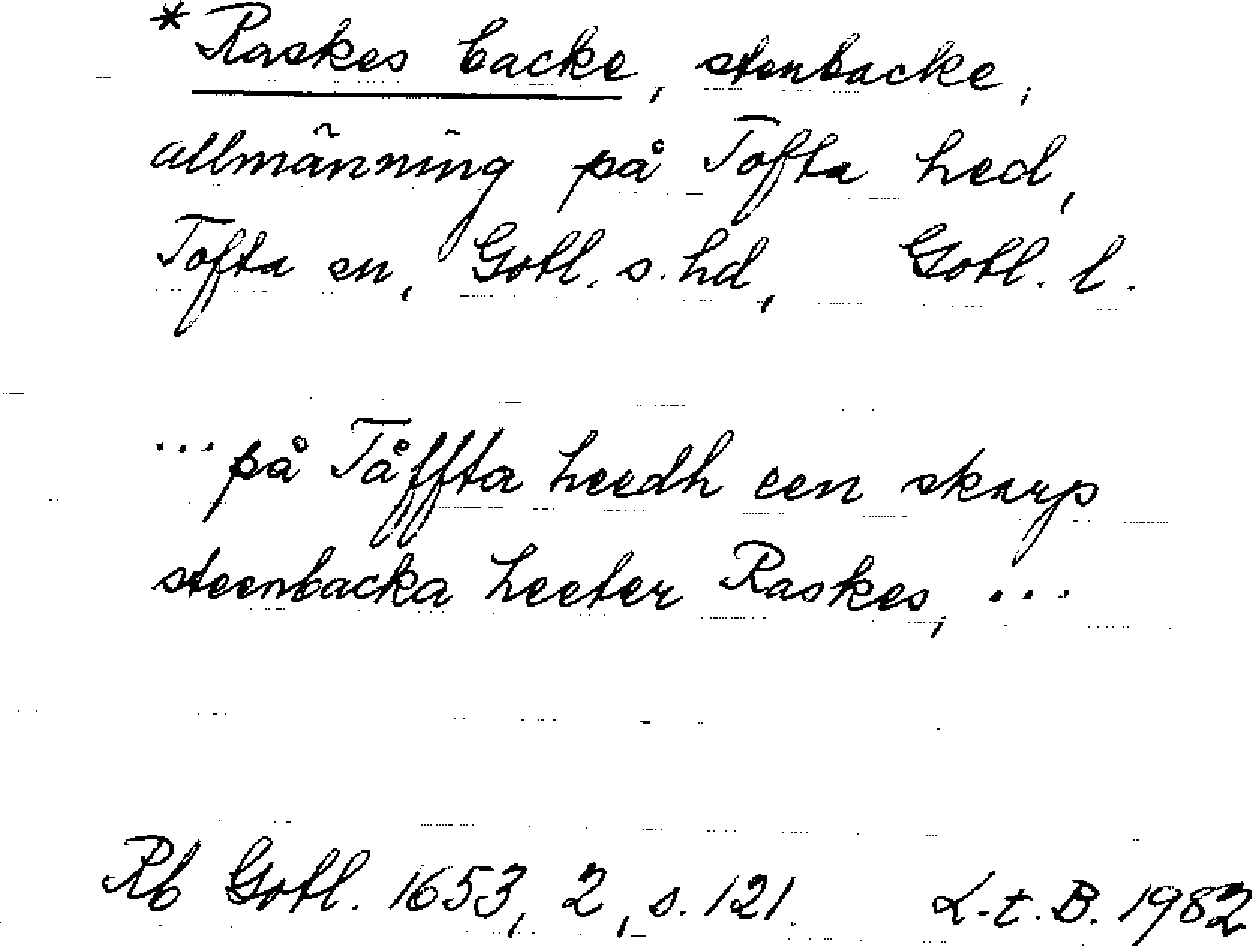 *Raskes backe, stenbacke,
allmänning på Tofta hed,
Tofta sn, Gotl. s. hd, Gotl. l.
... på Tåffta heedh een skarp
steenbacka heeter Raskes, ...
Rb Gotl. 1653, 2, s. 121. L.t.B. 1982